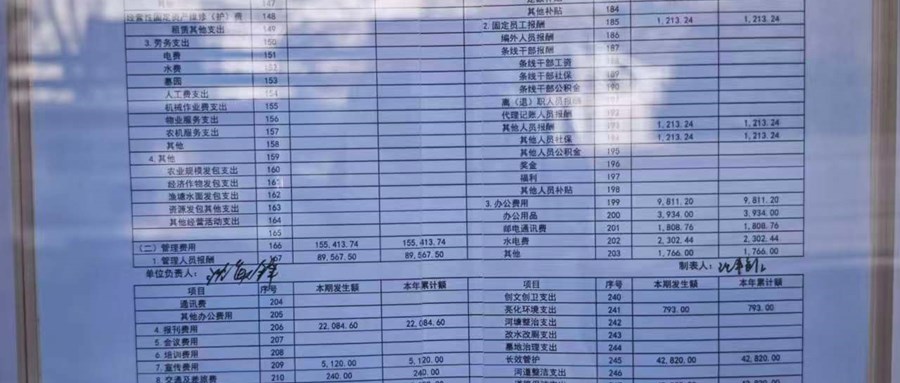 其他 147
经营性固定资产维修（护）费 148
租赁其他支出 149
3. 劳务支出 150
电费 151
水费 152
墓园 153
人工费支出 154
机械作业费支出 155
物业服务支出 156
农机服务支出 157
其他 158
4. 其他 159
农业规模发包支出 160
经济作物发包支出 161
渔塘水面发包支出 162
资源发包其他支出 163
其他经营活动支出 164
165
（二）管理费用 166 155,413.74 155,413.74
1. 管理人员报酬 167 89,567.50 89,567.50
单位负责人：
项目 序号 本期发生额 本年累计额
通讯费 204
其他办公费用 205
4. 报刊费用 206 22,084.60 22,084.60
5. 会议费用 207
6. 培训费用 208
7. 宣传费用 209 5,120.00 5,120.00
8. 交通及差旅费 210 240.00 240.00
其他补贴 184
2. 固定员工报酬 185 1,213.24 1,213.24
编外人员报酬 186
条线干部报酬 187
条线干部工资 188
条线干部社保 189
条线干部公积金 190
离（退）职人员报酬
代理记账人员报酬 192
其他人员报酬 193 1,213.24 1,213.24
其他人员社保 194 1,213.24 1,213.24
其他人员公积金 195
奖金 196
福利 197
其他人员补贴 198
3. 办公费用 199 9,811.20 9,811.20
办公用品 200 3,934.00 3,934.00
邮电通讯费 201 1,808.76 1,808.76
水电费 202 2,302.44 2,302.44
其他 203 1,766.00 1,766.00
制表人：
项目 序号 本期发生额 本年累计额
创文创卫支出 240
亮化环境支出 241 793.00 793.00
河塘整治支出 242
改水改厕支出 243
墓地治理支出 244
长效管护 245 42,820.00 42,820.00
河道整洁支出 246